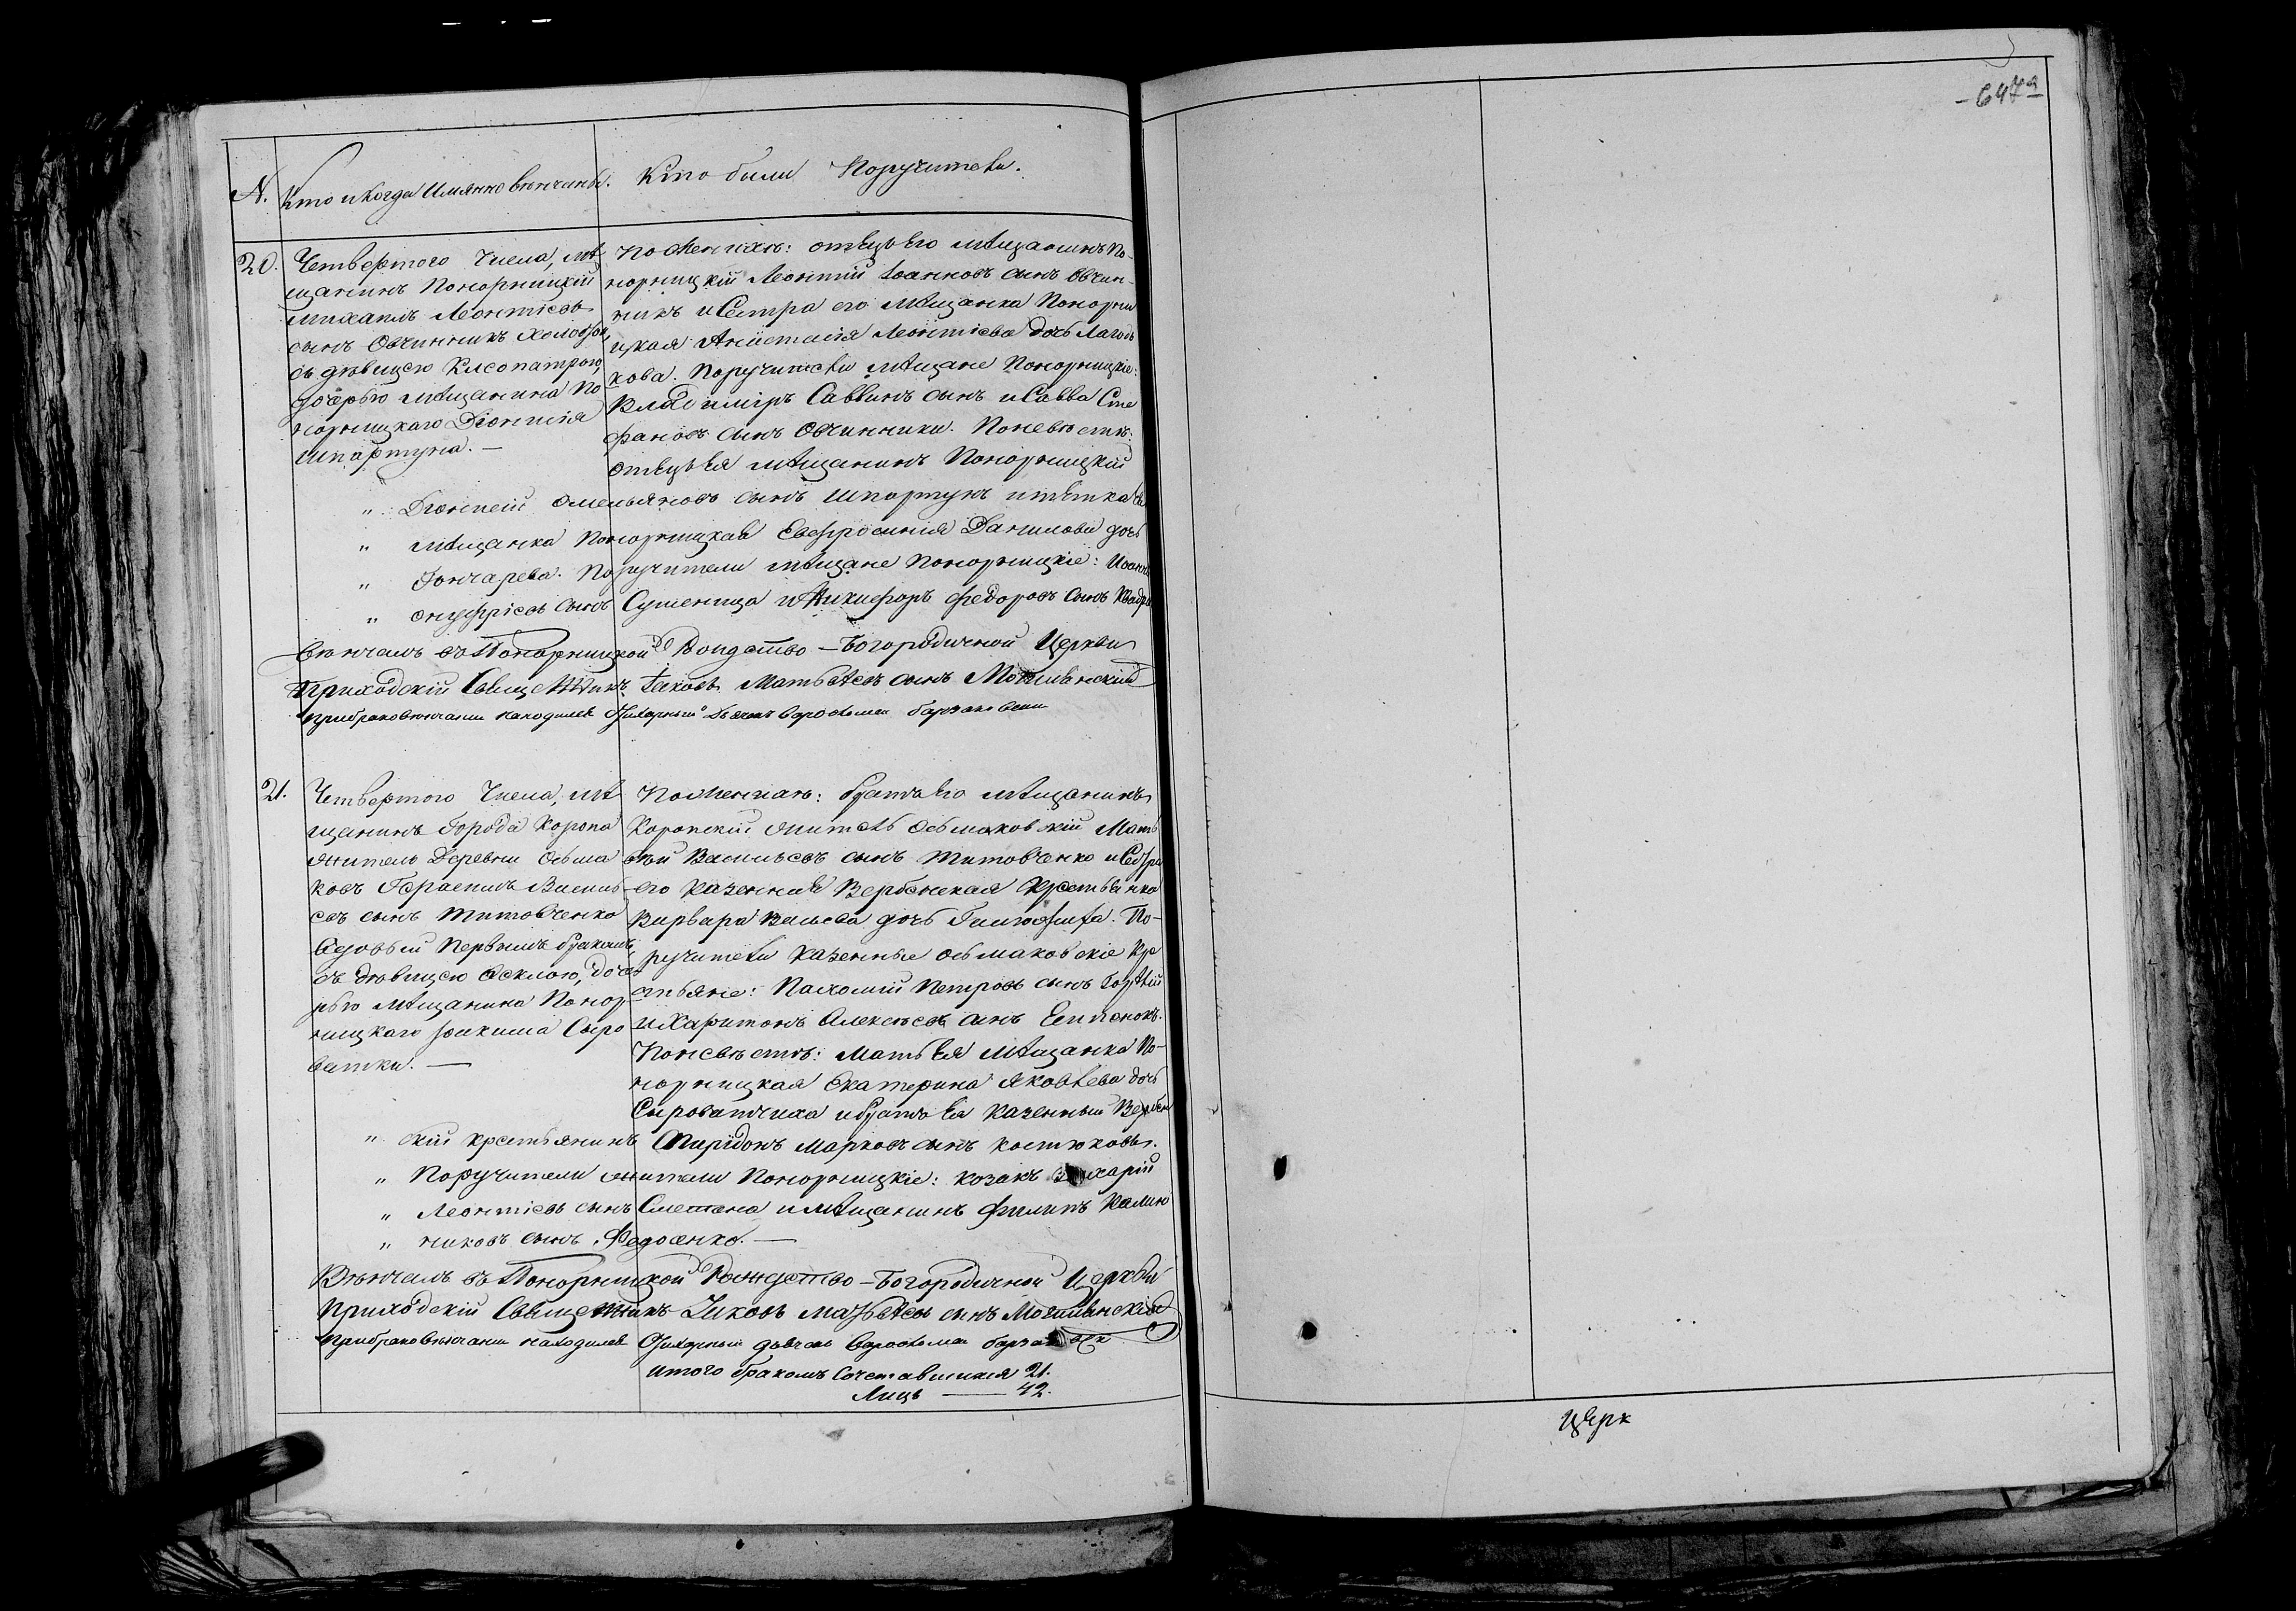 N. Кто и когда Имянно венчаны. Кто были Поручители.
20. Четвертого Числа, мѣ
щанинъ Понорницкій
Михаилъ Леонтіевъ
сынъ Овчинникъ Холостой,
съ дѣвицею Клеопатрою,
дочерью мѣщанина По
норницкаго Діонисія
Шпортуна. —
По Женихѣ: отецъ Его мѣщанинъ По-
норницкій Леонтій Іоанновъ сынъ Овчин-
никъ и Сестра его Мѣщанка Понорни
цкая Анастасія Леонтіева дочь
кова. Поручители мѣщане Понорницкіе:
Владимиръ Саввинъ сынъ и Савва Сте
фановъ сынъ Овчинники. По невѣстѣ:
отецъ Ея мѣщанинъ Понорницкій
" Діонисій Омельяновъ сынъ Шпортунъ и тѣтка Ея
" мѣщанка Понорницкая Евфросинія Данилова дочь
" Гончарева. Поручители мѣщане Понорницкіе: Иоаннъ
" Онуфріевъ сынъ Сушеница и Никифоръ Федоровъ сынъ
Вѣнчалъ въ Понорницкой Рождество-Богородичной Церкви
Приходскій Священникъ Іаковъ Матвѣевъ сынъ
при браковѣнчаніи находился
21. Четвертого Числа, мѣ
щанинъ Города Коропа
житель Деревни Осьма
ковъ Герасимъ Василь
евъ сынъ Титовченко
вдовый первымъ бракомъ,
съ дѣвицею Феклою, доче
рью мѣщанина Понор
ницкаго Іоакима Сыро
ватки. —
По Женихѣ: братъ Его мѣщанинъ
Коропскій житель Осьмаковскій Мат
вѣй Васильевъ сынъ Титовченко и Сестра
его казенная Вербенская Крестьянка
Варвара Вильева дочь По-
ручители казенные Осьмаковскіе Кре
стьяне: Пахомій Петровъ сынъ
и Харитонъ Алексѣевъ сынъ
По невѣстѣ: Мать Ея мѣщанка По-
норницкая Екатерина Яковлева дочь
Сыроватчиха и братъ Ея казенный Вербен
" скій крестьянинъ Спиридонъ Марковъ сынъ Костюковъ.
" Поручители жители Понорницкіе: козакъ Захарій
" Леонтіевъ сынъ Сметана и мѣщанинъ Филипъ Калин
" никовъ сынъ Федосенко. —
Вѣнчалъ въ Понорницкой Рождество-Богородичной Церкви
Приходскій Священникъ Іаковъ Матвѣевъ сынъ
при браковѣнчаніи находился
Итого бракомъ Сочетавшихся 21.
Лицъ — 42.
Церк